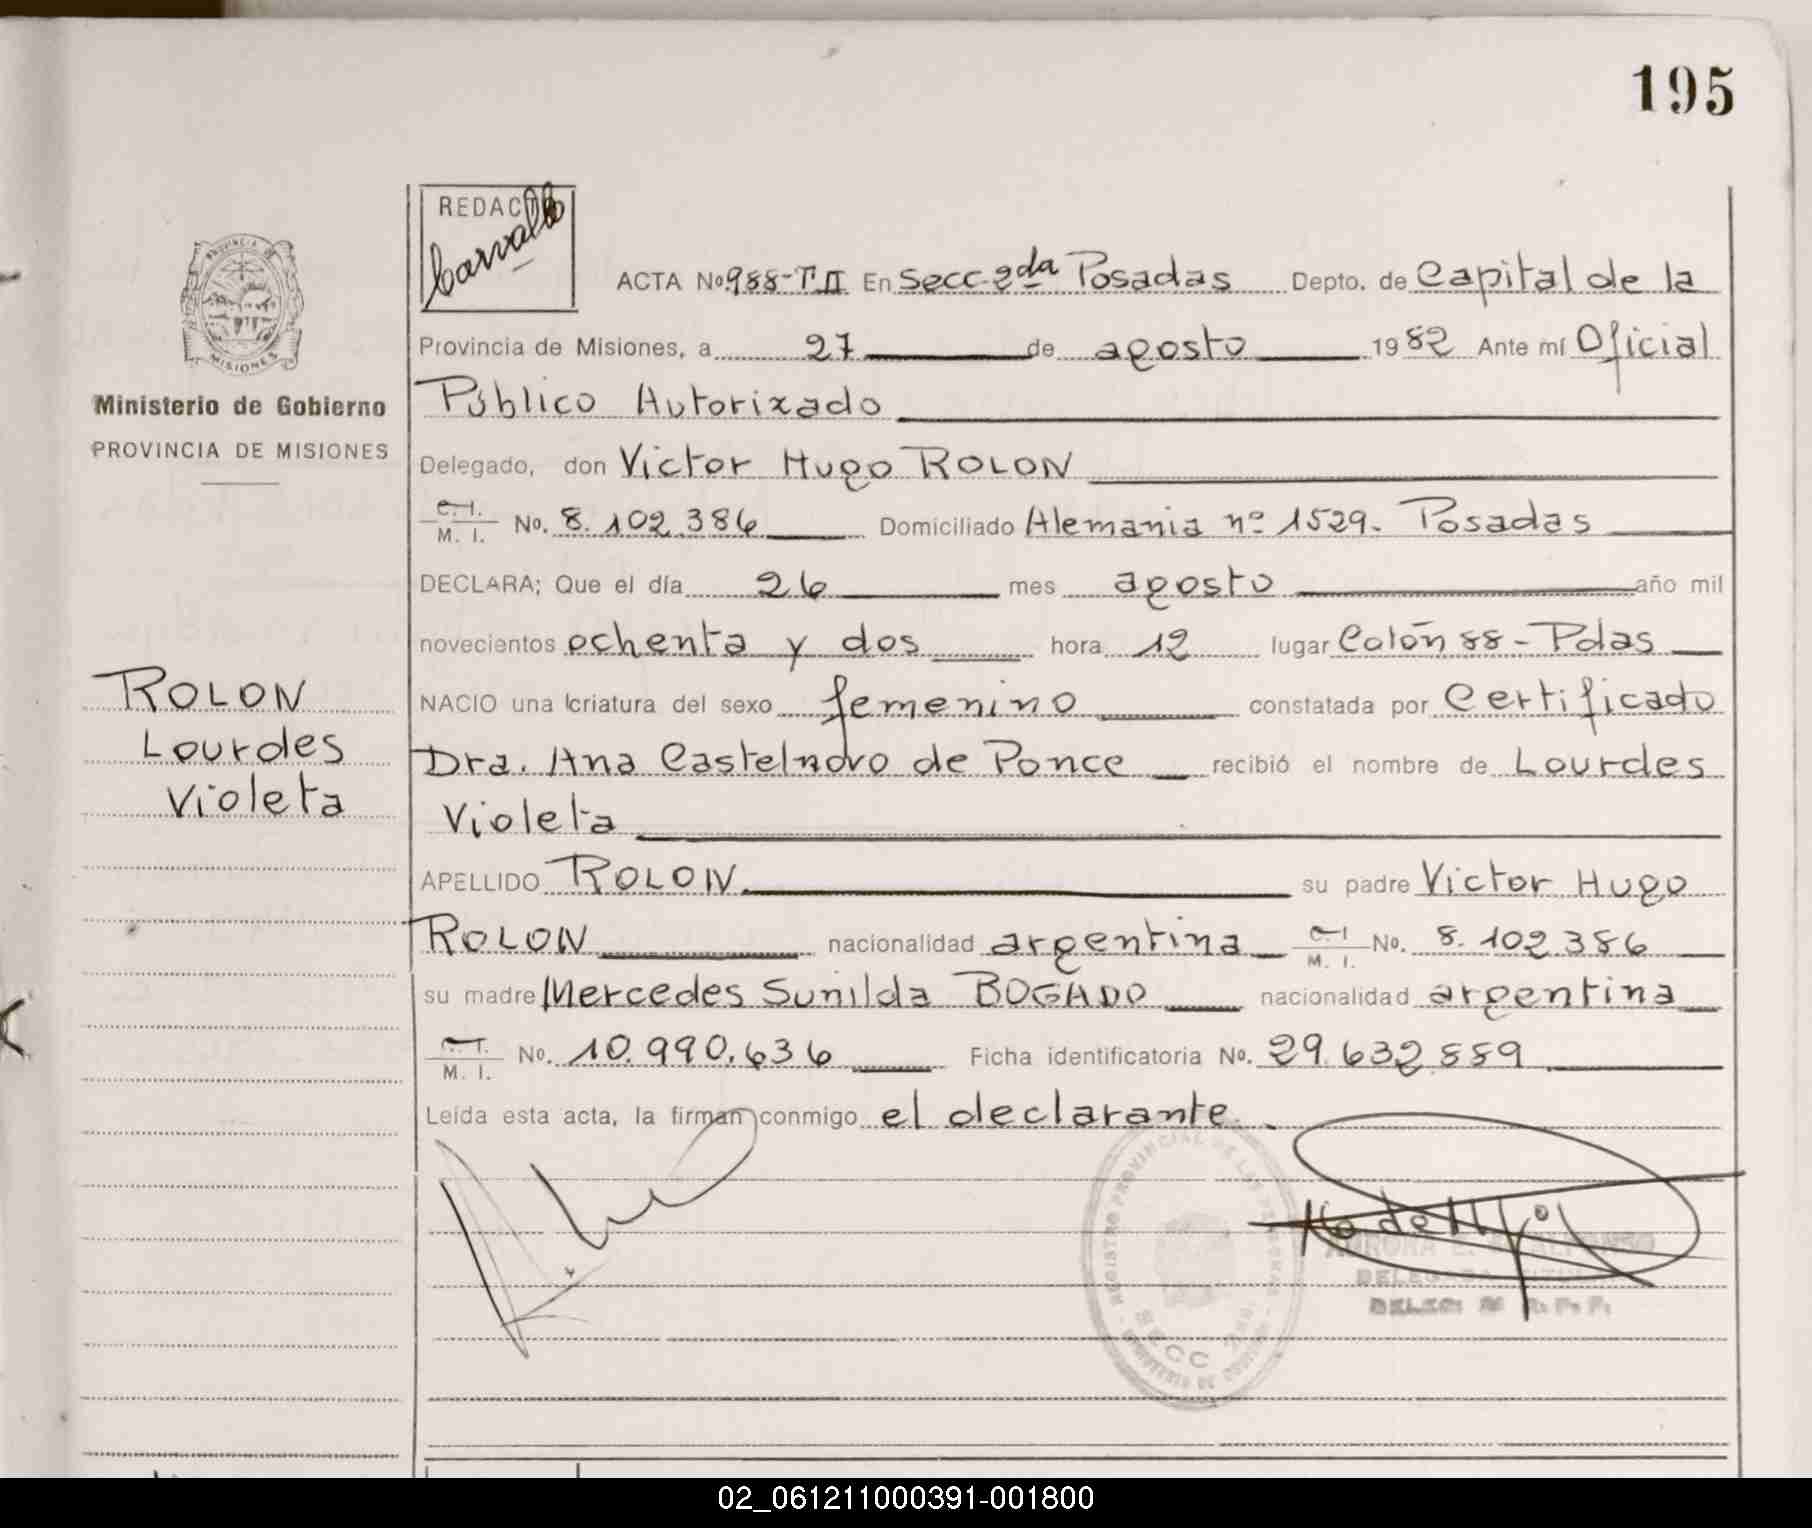 195
REDACTO
Carvallo
PROVINCIA DE
MISIONES
Ministerio de Gobierno
PROVINCIA DE MISIONES
ROLON
Lourdes
Violeta
ACTA No 988-T.II En Secc 2da Posadas Depto. de Capital de la
Provincia de Misiones, a 27 de agosto 1982 Ante mí Oficial
Público Autorizado
Delegado, don Victor Hugo ROLON
C. I.
M. I. No. 8.102.386 Domiciliado Alemania nº 1529. Posadas
DECLARA; Que el día 26 mes agosto año mil
novecientos ochenta y dos hora 12 lugar Colón 88 - Pdas
NACIO una criatura del sexo femenino constatada por Certificado
Dra. Ana Castelnovo de Ponce recibió el nombre de Lourdes
Violeta
APELLIDO ROLON su padre Victor Hugo
ROLON nacionalidad argentina C. I.
M. I. No. 8.102.386
su madre Mercedes Sunilda BOGADO nacionalidad argentina
C. I.
M. I. No. 10.990.636 Ficha identificatoria No. 29.632.889
Leída esta acta, la firman conmigo el declarante.
REGISTRO PROVINCIAL DE LAS PERSONAS
SECC
DELEGADA TITULAR
02_061211000391-001800